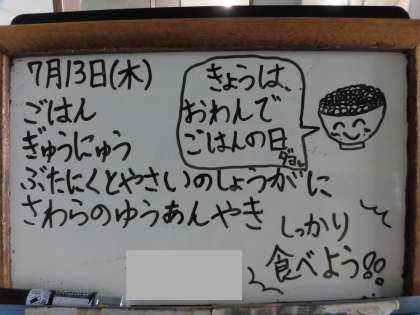 7月13日(木)
ごはん
ぎゅうにゅう
ぶたにくとやさいのしょうがに
さわらのゆうあんやき
きょうは、
おわんで
ごはんの日
ダヨ。
しっかり
食べよう!!